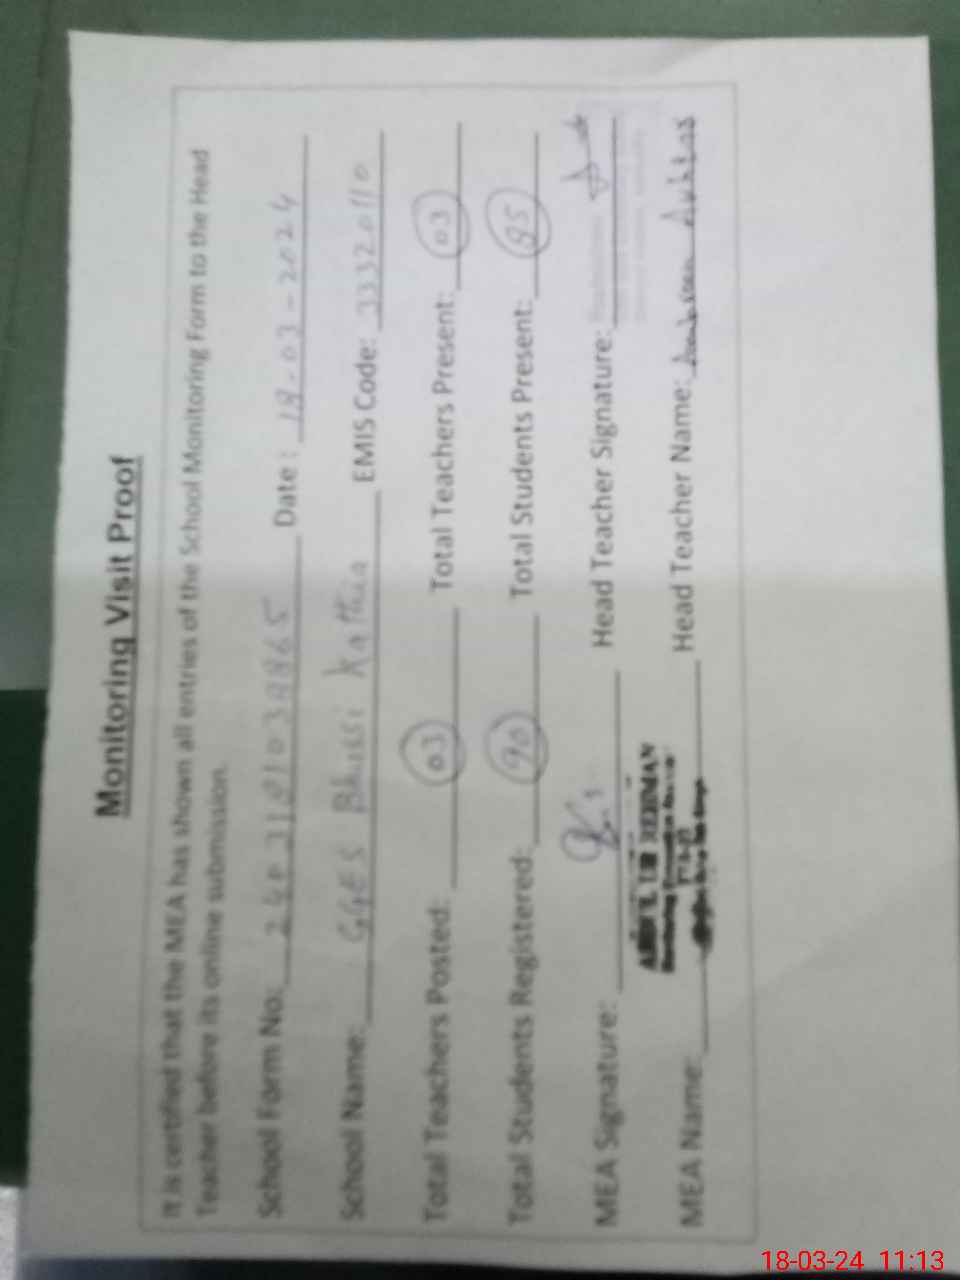 Monitoring Visit Proof
It is certified that the MEA has shown all entries of the School Monitoring Form to the Head
Teacher before its online submission.
School Form No: Date: 18-03-2024
School Name: GGES Bhussi Kathia EMIS Code: 33320110
Total Teachers Posted: 03 Total Teachers Present: 03
Total Students Registered: 90 Total Students Present: 85
MEA Signature: Head Teacher Signature:
REHMAN
MEA Name: Head Teacher Name:
18-03-24 11:13